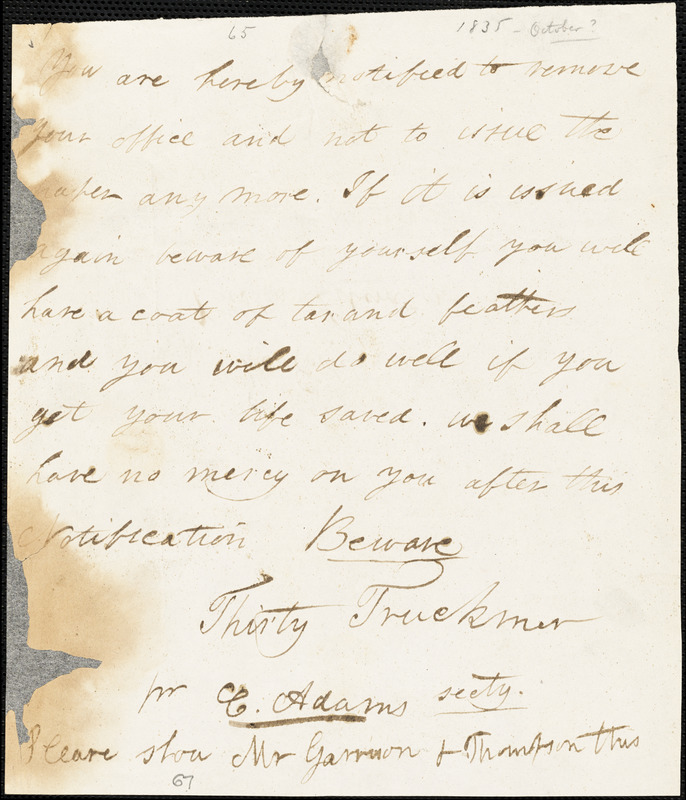 65 1835 - October?
You are hereby notified to remove
your office and not to issue the
paper any more. If it is issued
again beware of yourself you will
have a coat of tar and feathers
and you will do well if you
get your life saved. we shall
have no mercy on you after this
Notification Beware
Thirty Truckmen
pr C. Adams secty.
Please shou Mr Garrison & Thompson this
67